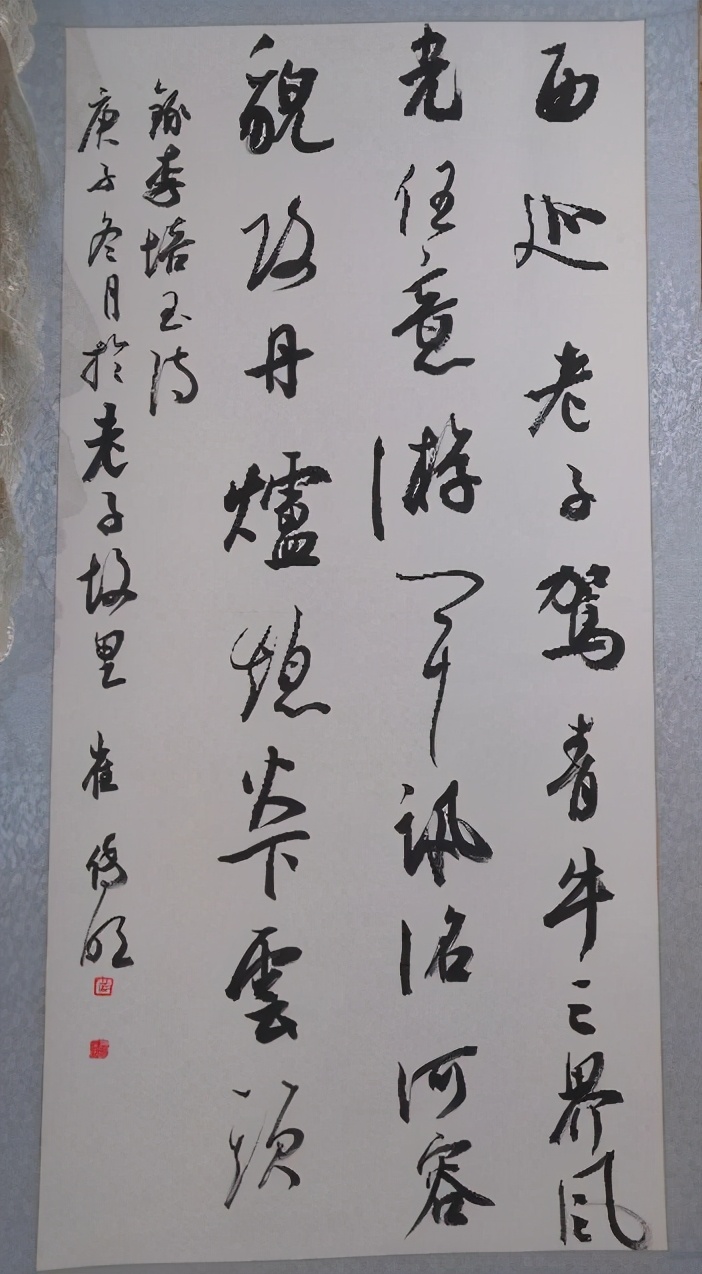 西巡老子駕青牛三界風
光任意游聞訊洛河容
貌改丹爐熄火下雲頭
錄李培玉詩
庚子冬月於老子故里 崔